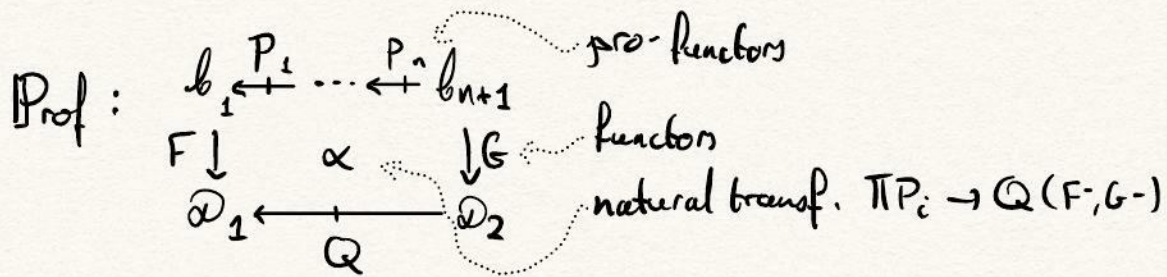 ℙrof : 𝒞₁ ←P₁ ⋯ ←Pₙ 𝒞ₙ₊₁ pro-functors
F ↓ α ↓ G functors
𝒟₁ ← 𝒟₂ natural transf. ΠPᵢ → Q(F-,G-)
Q